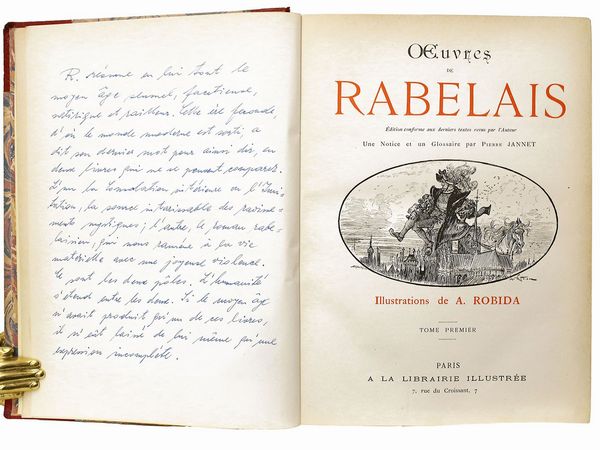 R. résume en lui tout le
moyen âge sensuel, facétieux,
satirique et railleur. Cette ère féconde,
d'où le monde moderne est sorti a
dit son dernier mot pour ainsi dire, en
deux livres qui ne se peuvent comparer.
L'un la Consolation intérieure ou l'Imi-
tation, la source intarissable des ravisse-
ments mystiques; l'autre, le roman rabe-
laisien, qui nous ramène à la vie
matérielle avec une joyeuse violence.
Ce sont les deux pôles. L'humanité
s'étend entre les deux. Si le moyen âge
n'avait produit qu'un de ces livres,
il n'eût laissé de lui même qu'une
expression incomplète.
ŒEuvres
DE
RABELAIS
Édition conforme aux derniers textes revus par l'Auteur
Une Notice et un Glossaire par PIERRE JANNET
Illustrations de A. ROBIDA
TOME PREMIER
PARIS
A LA LIBRAIRIE ILLUSTRÉE
7, rue du Croissant, 7